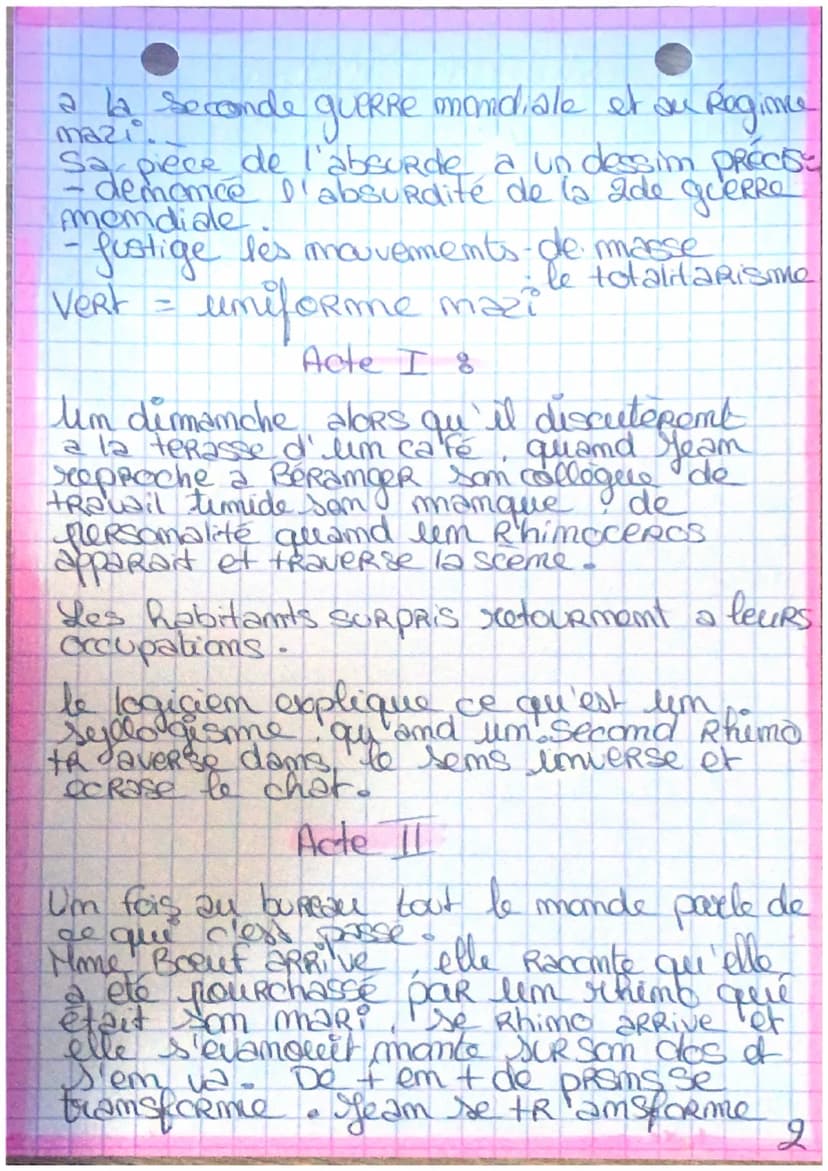 a la seconde guerre mondiale et au Régime
nazi...
Sa pièce de l'absurde a un dessin précis:
- dénonce l'absurdité de la 2de guerre
mondiale.
- fustige les mouvements de masse
: le totalitarisme
Vert = uniforme nazi
Acte I :
Un dimanche alors qu'il discutèrent
a la terasse d'un café, quand Jean
reproche a Béranger son collègue de
travail timide son manque de
personalité quand un Rhinoceros
apparait et traverse la scène.
Les habitants surpris retournent a leurs
occupations.
le logicien explique ce qu'est un
syllogisme, quand un second Rhino
traverse dans le sens inverse et
ecrase le chat.
Acte II
Un fois au bureau tout le monde parle de
ce qui c'est passé.
Mme Bœuf arrive, elle raconte qu'elle
a été pourchassé par un rhino qui
était son mari, le Rhino arrive et
elle s'evanouit monte sur son dos et
s'en va. De + en + de prsns se
transforme. Jean se transforme
2